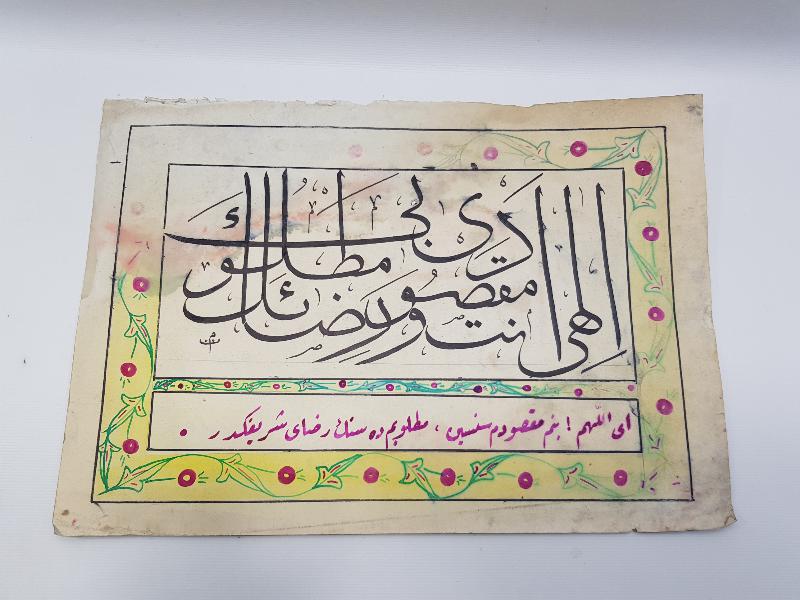 الهى انت مقصودى ورضائك مطلوبى
اى اللهم ! بنم مقصودم سنسين ، مطلوبم ده سنك رضاى شريفكدر .